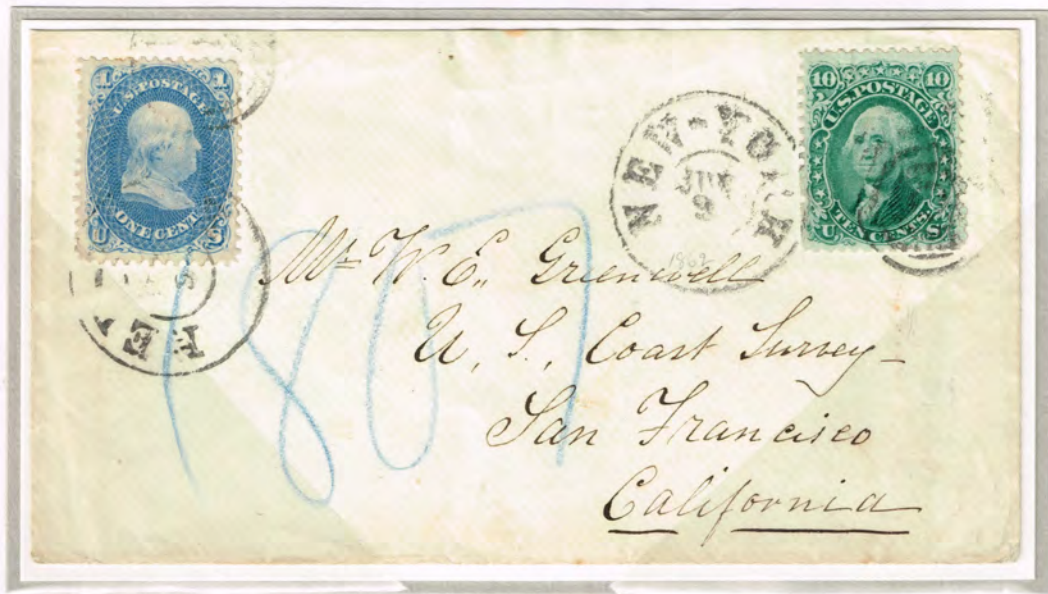 1 1
U.S. POSTAGE
ONE CENT
U S
NEW-YORK
JUN
9
1862
10 10
U.S. POSTAGE
TEN CENTS.
U S
Mr W. E. Greenwell
U. S. Coast Survey
San Francisco
California
1807